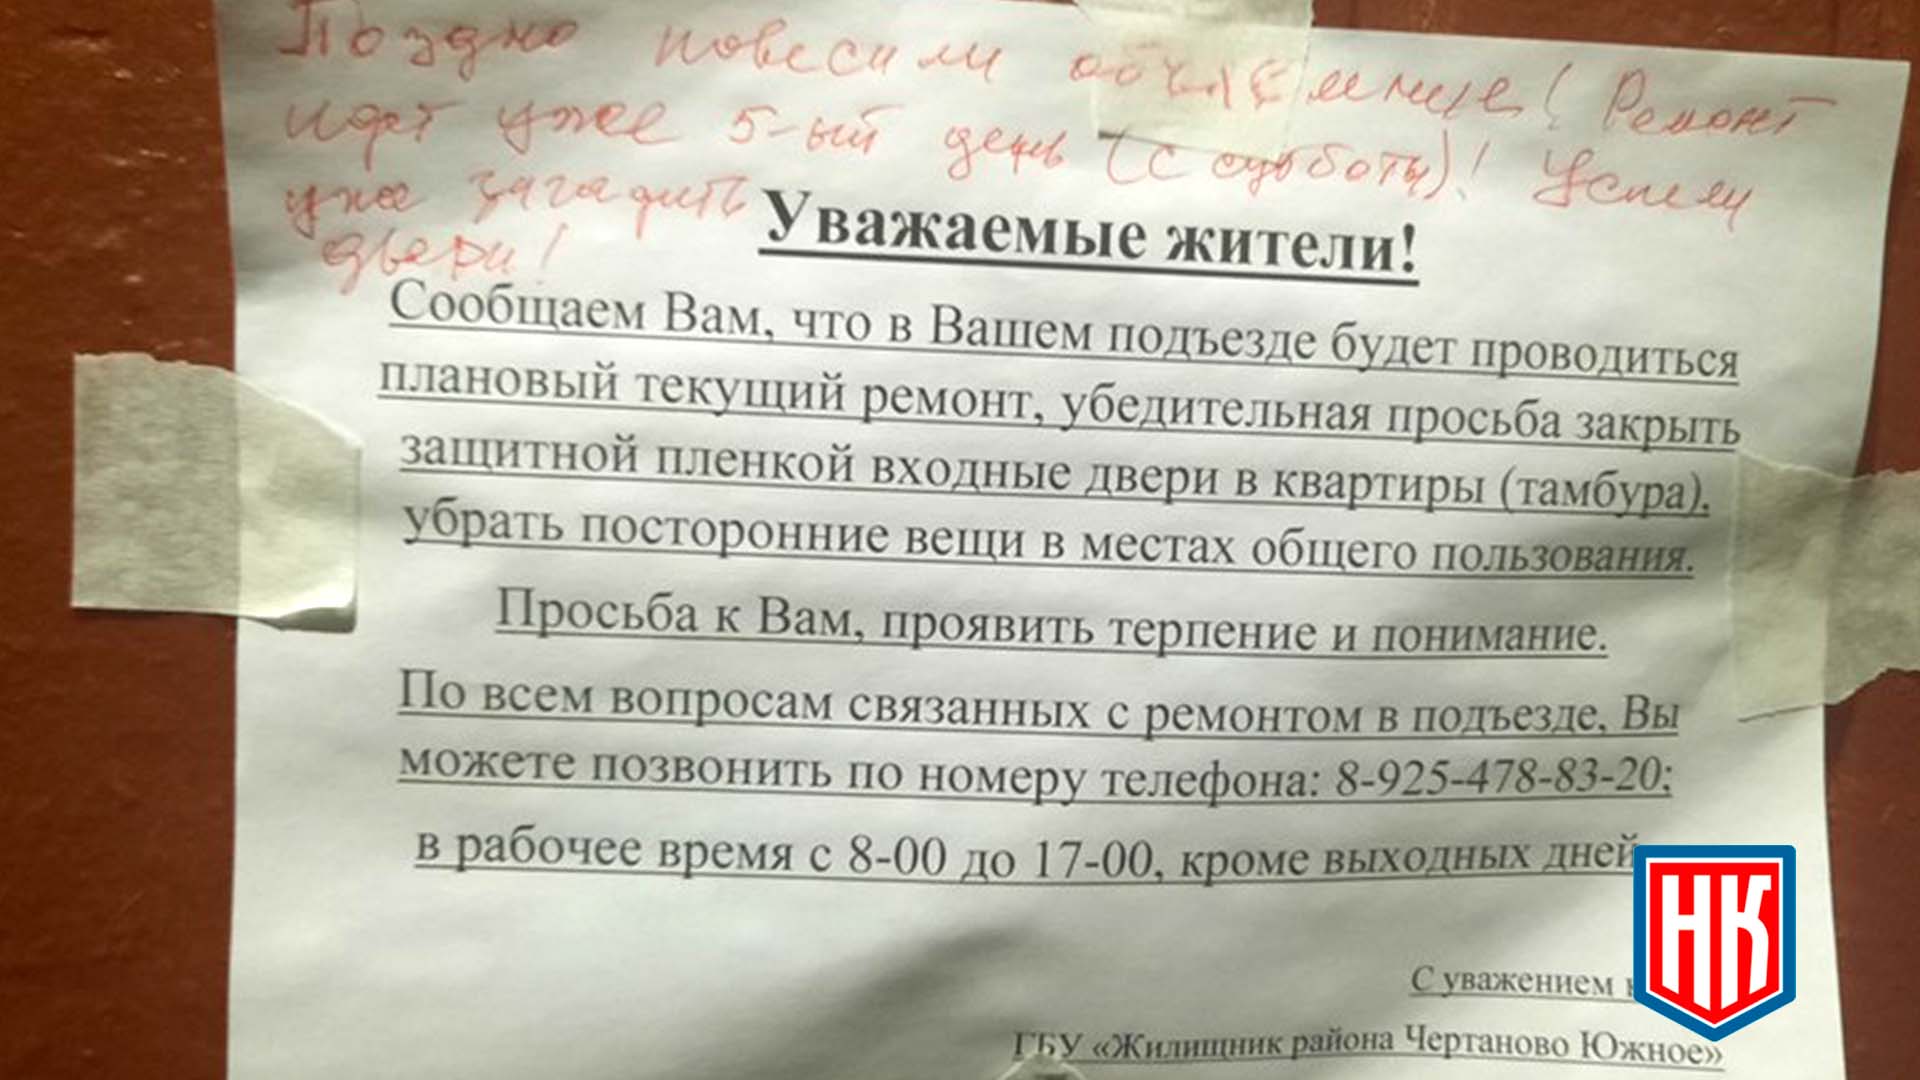 Поздно повесили объявление! Ремонт
идет уже 5-ый день (с субботы)! Успели
уже загадить
двери!
Уважаемые жители!
Сообщаем Вам, что в Вашем подъезде будет проводиться
плановый текущий ремонт, убедительная просьба закрыть
защитной пленкой входные двери в квартиры (тамбура),
убрать посторонние вещи в местах общего пользования.
Просьба к Вам, проявить терпение и понимание.
По всем вопросам связанных с ремонтом в подъезде, Вы
можете позвонить по номеру телефона: 8-925-478-83-20;
в рабочее время с 8-00 до 17-00, кроме выходных дней
С уважением
ГБУ «Жилищник района Чертаново Южное»
НК